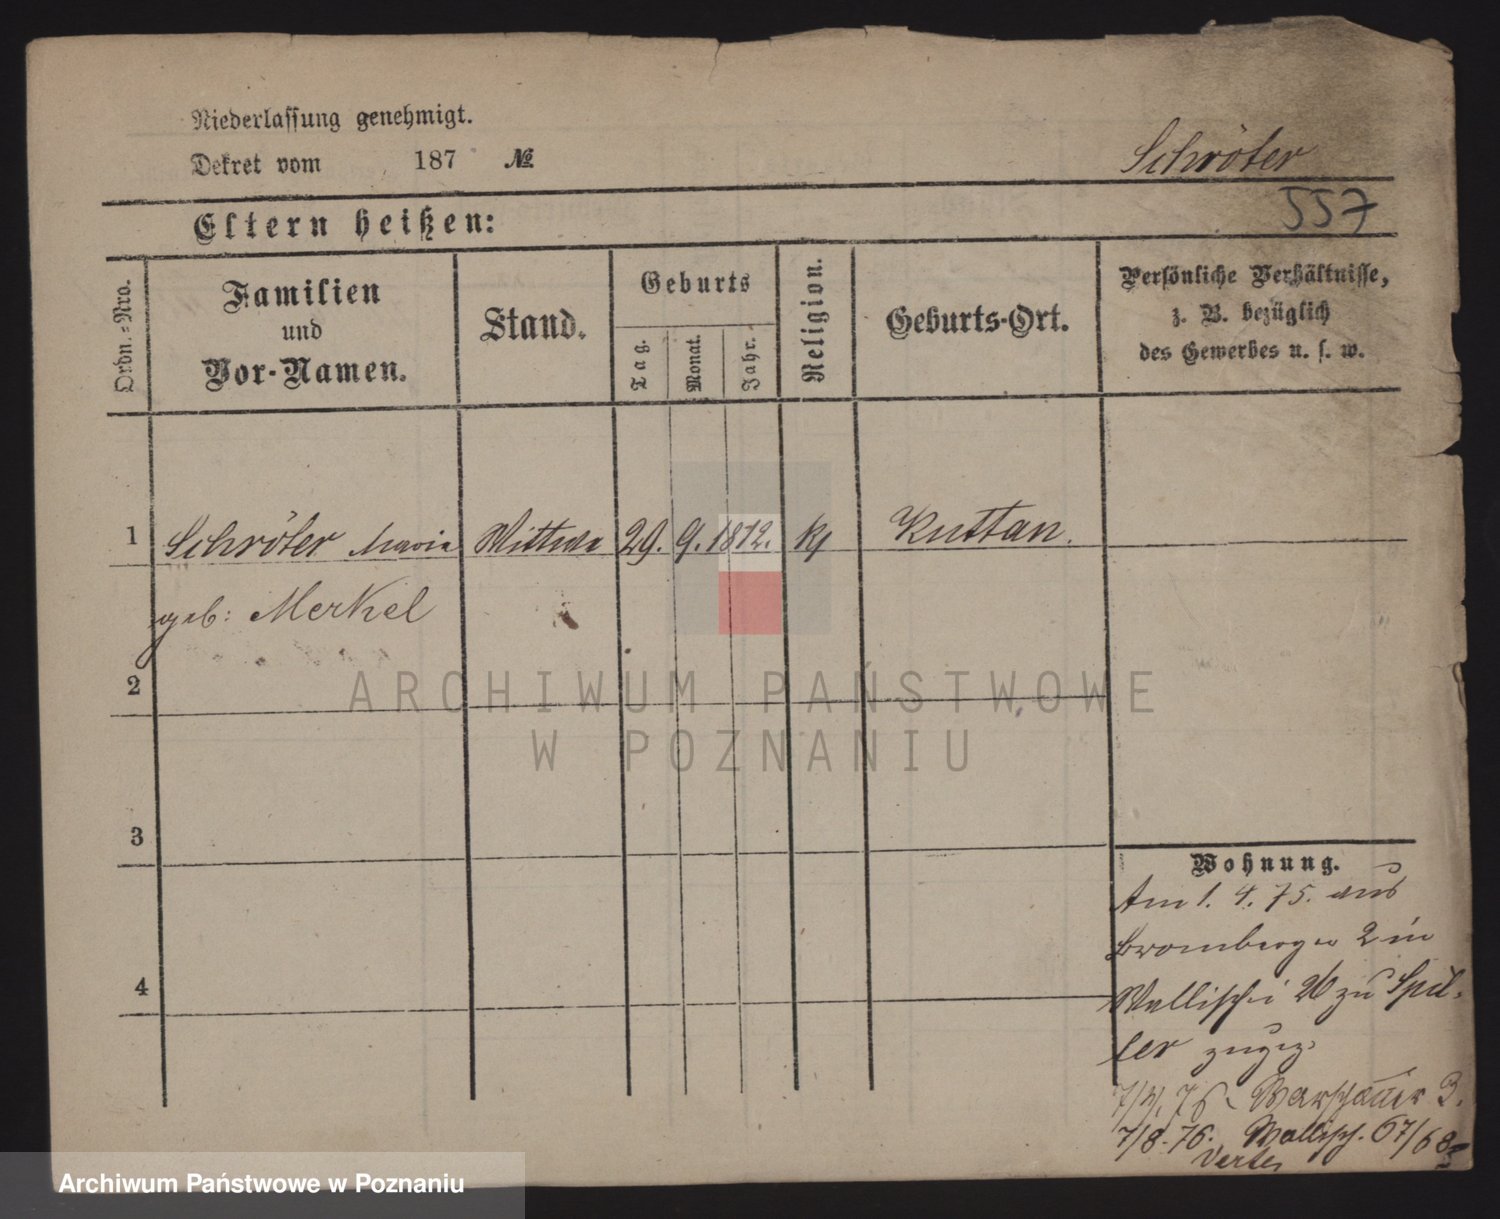 Niederlassung genehmigt.
Dekret vom 187 №
Schröter
557
Eltern heißen:
Ordn.-Nro.
Familien
und
Vor-Namen.
Stand.
Geburts
Tag.
Monat.
Jahr.
Religion.
Geburts-Ort.
Persönliche Verhältnisse,
z. B. bezüglich
des Gewerbes u. s. w.
1 Schröter Maria Wittwe 29. 9. 1812. Kuttan.
geb: Merkel
2
ARCHIWUM PAŃSTWOWE
W POZNANIU
3
Wohnung.
Am 1. 4. 75. aus
Bromberger 2 in
4
Wallischei 26 zu
zugez.
76. Warschauer 3.
7/8. 76. Wallisch. 67/68
Verte
Archiwum Państwowe w Poznaniu